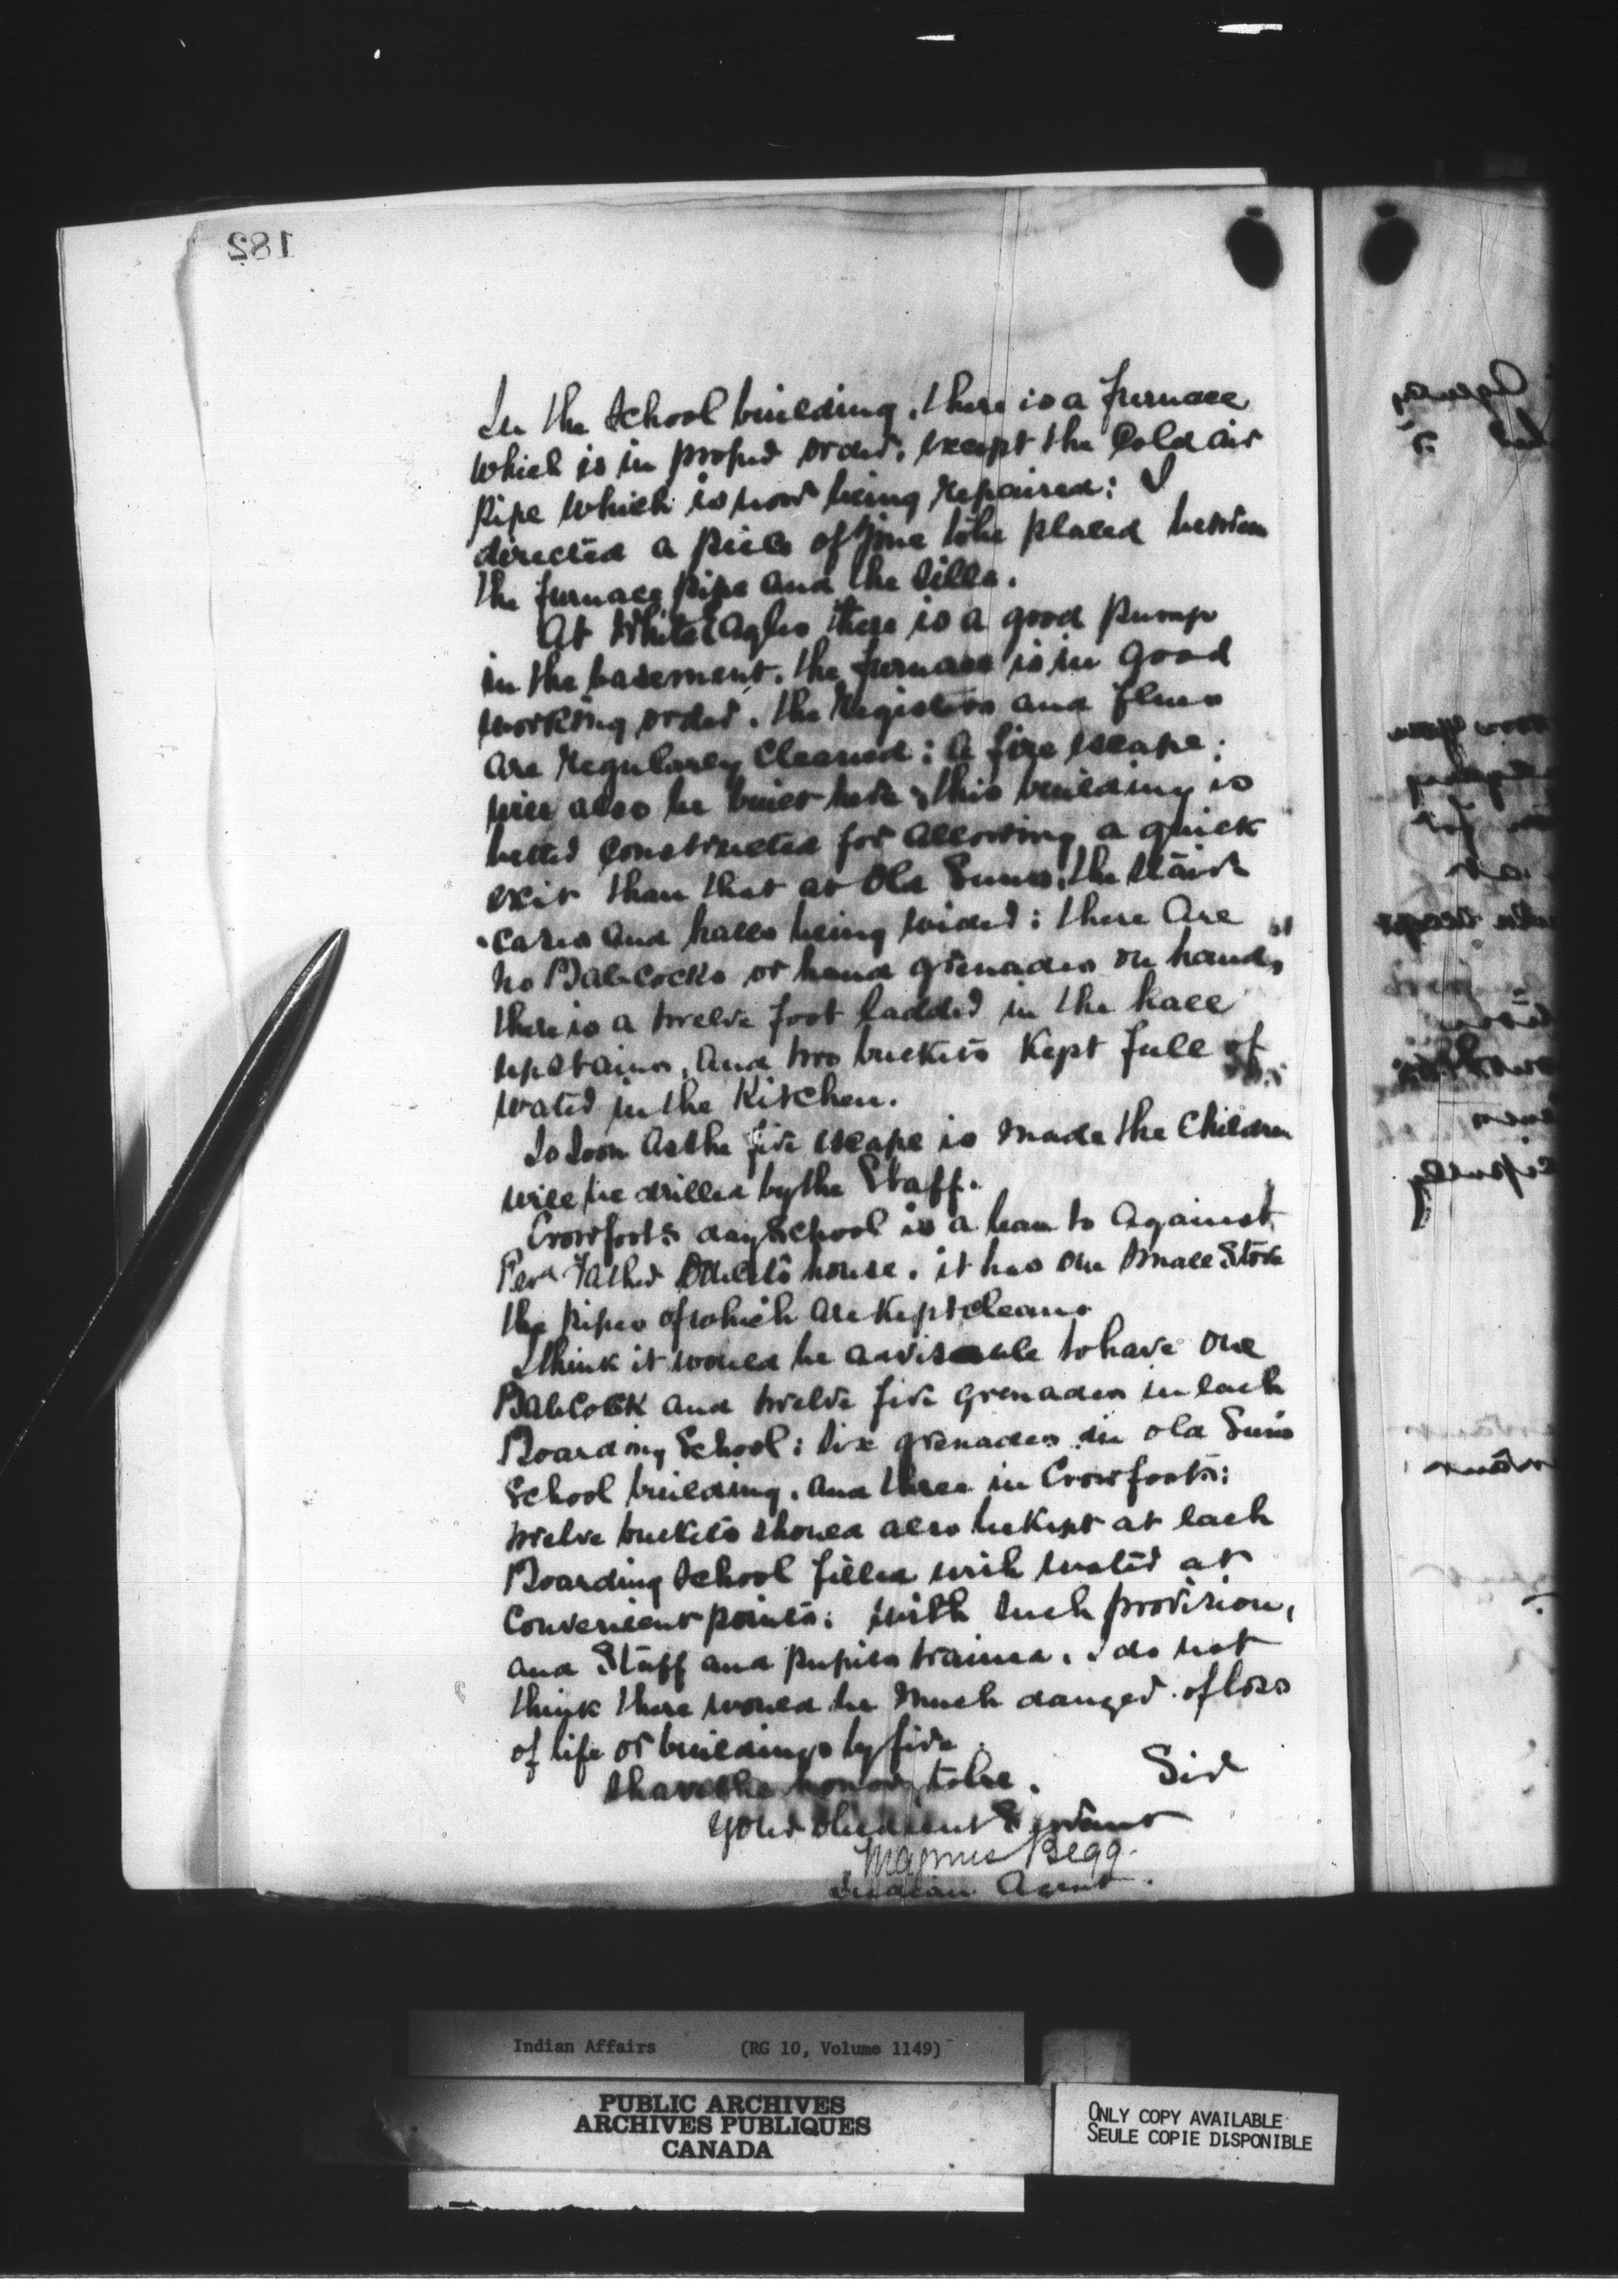 182
In the School building, there is a furnace
which is in proper order, except the Cold air
pipe which is now being repaired: I
directed a piece of zinc to be placed between
the furnace pipe and the sills.
At White Eagles there is a good pump
in the basement. the furnace is in good
working order. the registers and flues
are regularly cleaned: a fire escape
will also be built here, this building is
better constructed for allowing a quick
exit than that at Old Suns, the stair
cases and halls being wider: there are
no Babcocks or hand grenades on hand,
there is a twelve foot ladder in the hall
upstairs, and two buckets kept full of
water in the Kitchen.
So soon as the fire escape is made the Children
will be drilled by the Staff.
Crowfoots day School is a lean to against
Revd Father house. it has one small Stove
the pipes of which are kept clean
I think it would be advisable to have one
Babcock and twelve fire grenades in each
Boarding School: six grenades in Old Suns
School building, and three in Crowfoots:
twelve buckets should also be kept at each
Boarding School filled with water at
convenient points: with such provision,
and Staff and pupils trained. I do not
think there would be much danger of loss
of life or buildings by fire.
I have the honor to be. Sir
Your obedient Servant
Magnus Begg.
Indian Agent.
Indian Affairs (RG 10, Volume 1149)
PUBLIC ARCHIVES
ARCHIVES PUBLIQUES
CANADA
ONLY COPY AVAILABLE
SEULE COPIE DISPONIBLE